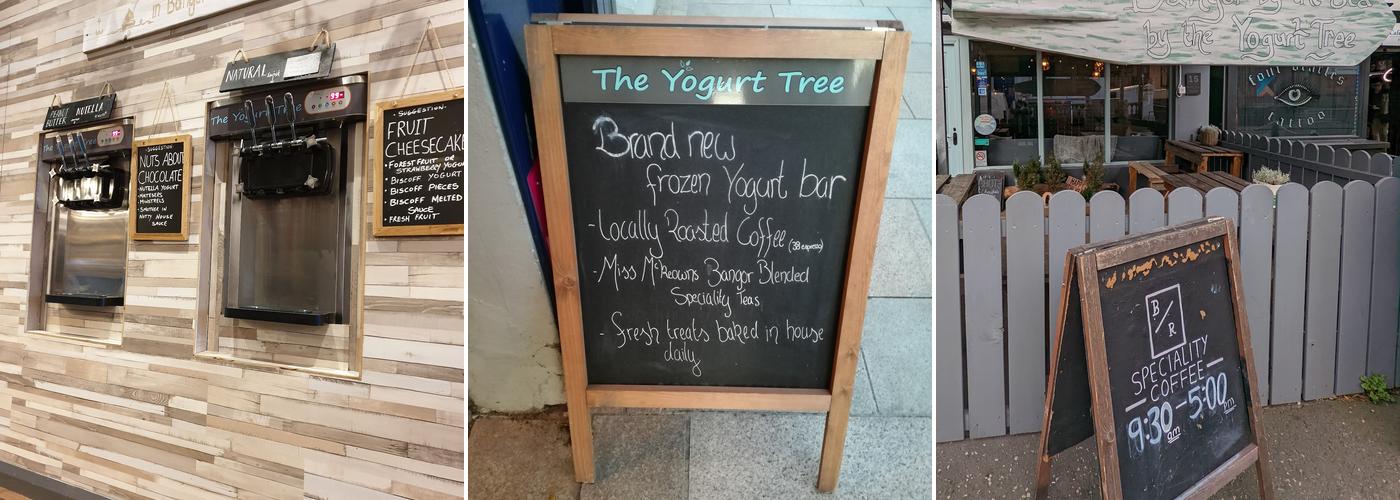 in Bangor
PEANUT
BUTTER
NUTELLA
NATURAL
The Yogurt Tree
-SUGGESTION-
NUTS ABOUT
CHOCOLATE
• NUTELLA YOGURT
• MALTESERS
• MINSTRELS
• SMOTHER IN
NUTTY HOUSE
SAUCE
-SUGGESTION-
FRUIT
CHEESECAKE
• FOREST FRUIT OR
STRAWBERRY YOGURT
• BISCOFF YOGURT
• BISCOFF PIECES
• BISCOFF MELTED
SAUCE
• FRESH FRUIT
The Yogurt Tree
Brand new
frozen Yogurt bar
- Locally Roasted Coffee (3B espresso)
- Miss McKeowns Bangor Blended
Speciality Teas
- fresh treats baked in house
daily
by the Yogurt Tree
15
tattoo
B/R
SPECIALITY
COFFEE
9:30am - 5:00pm